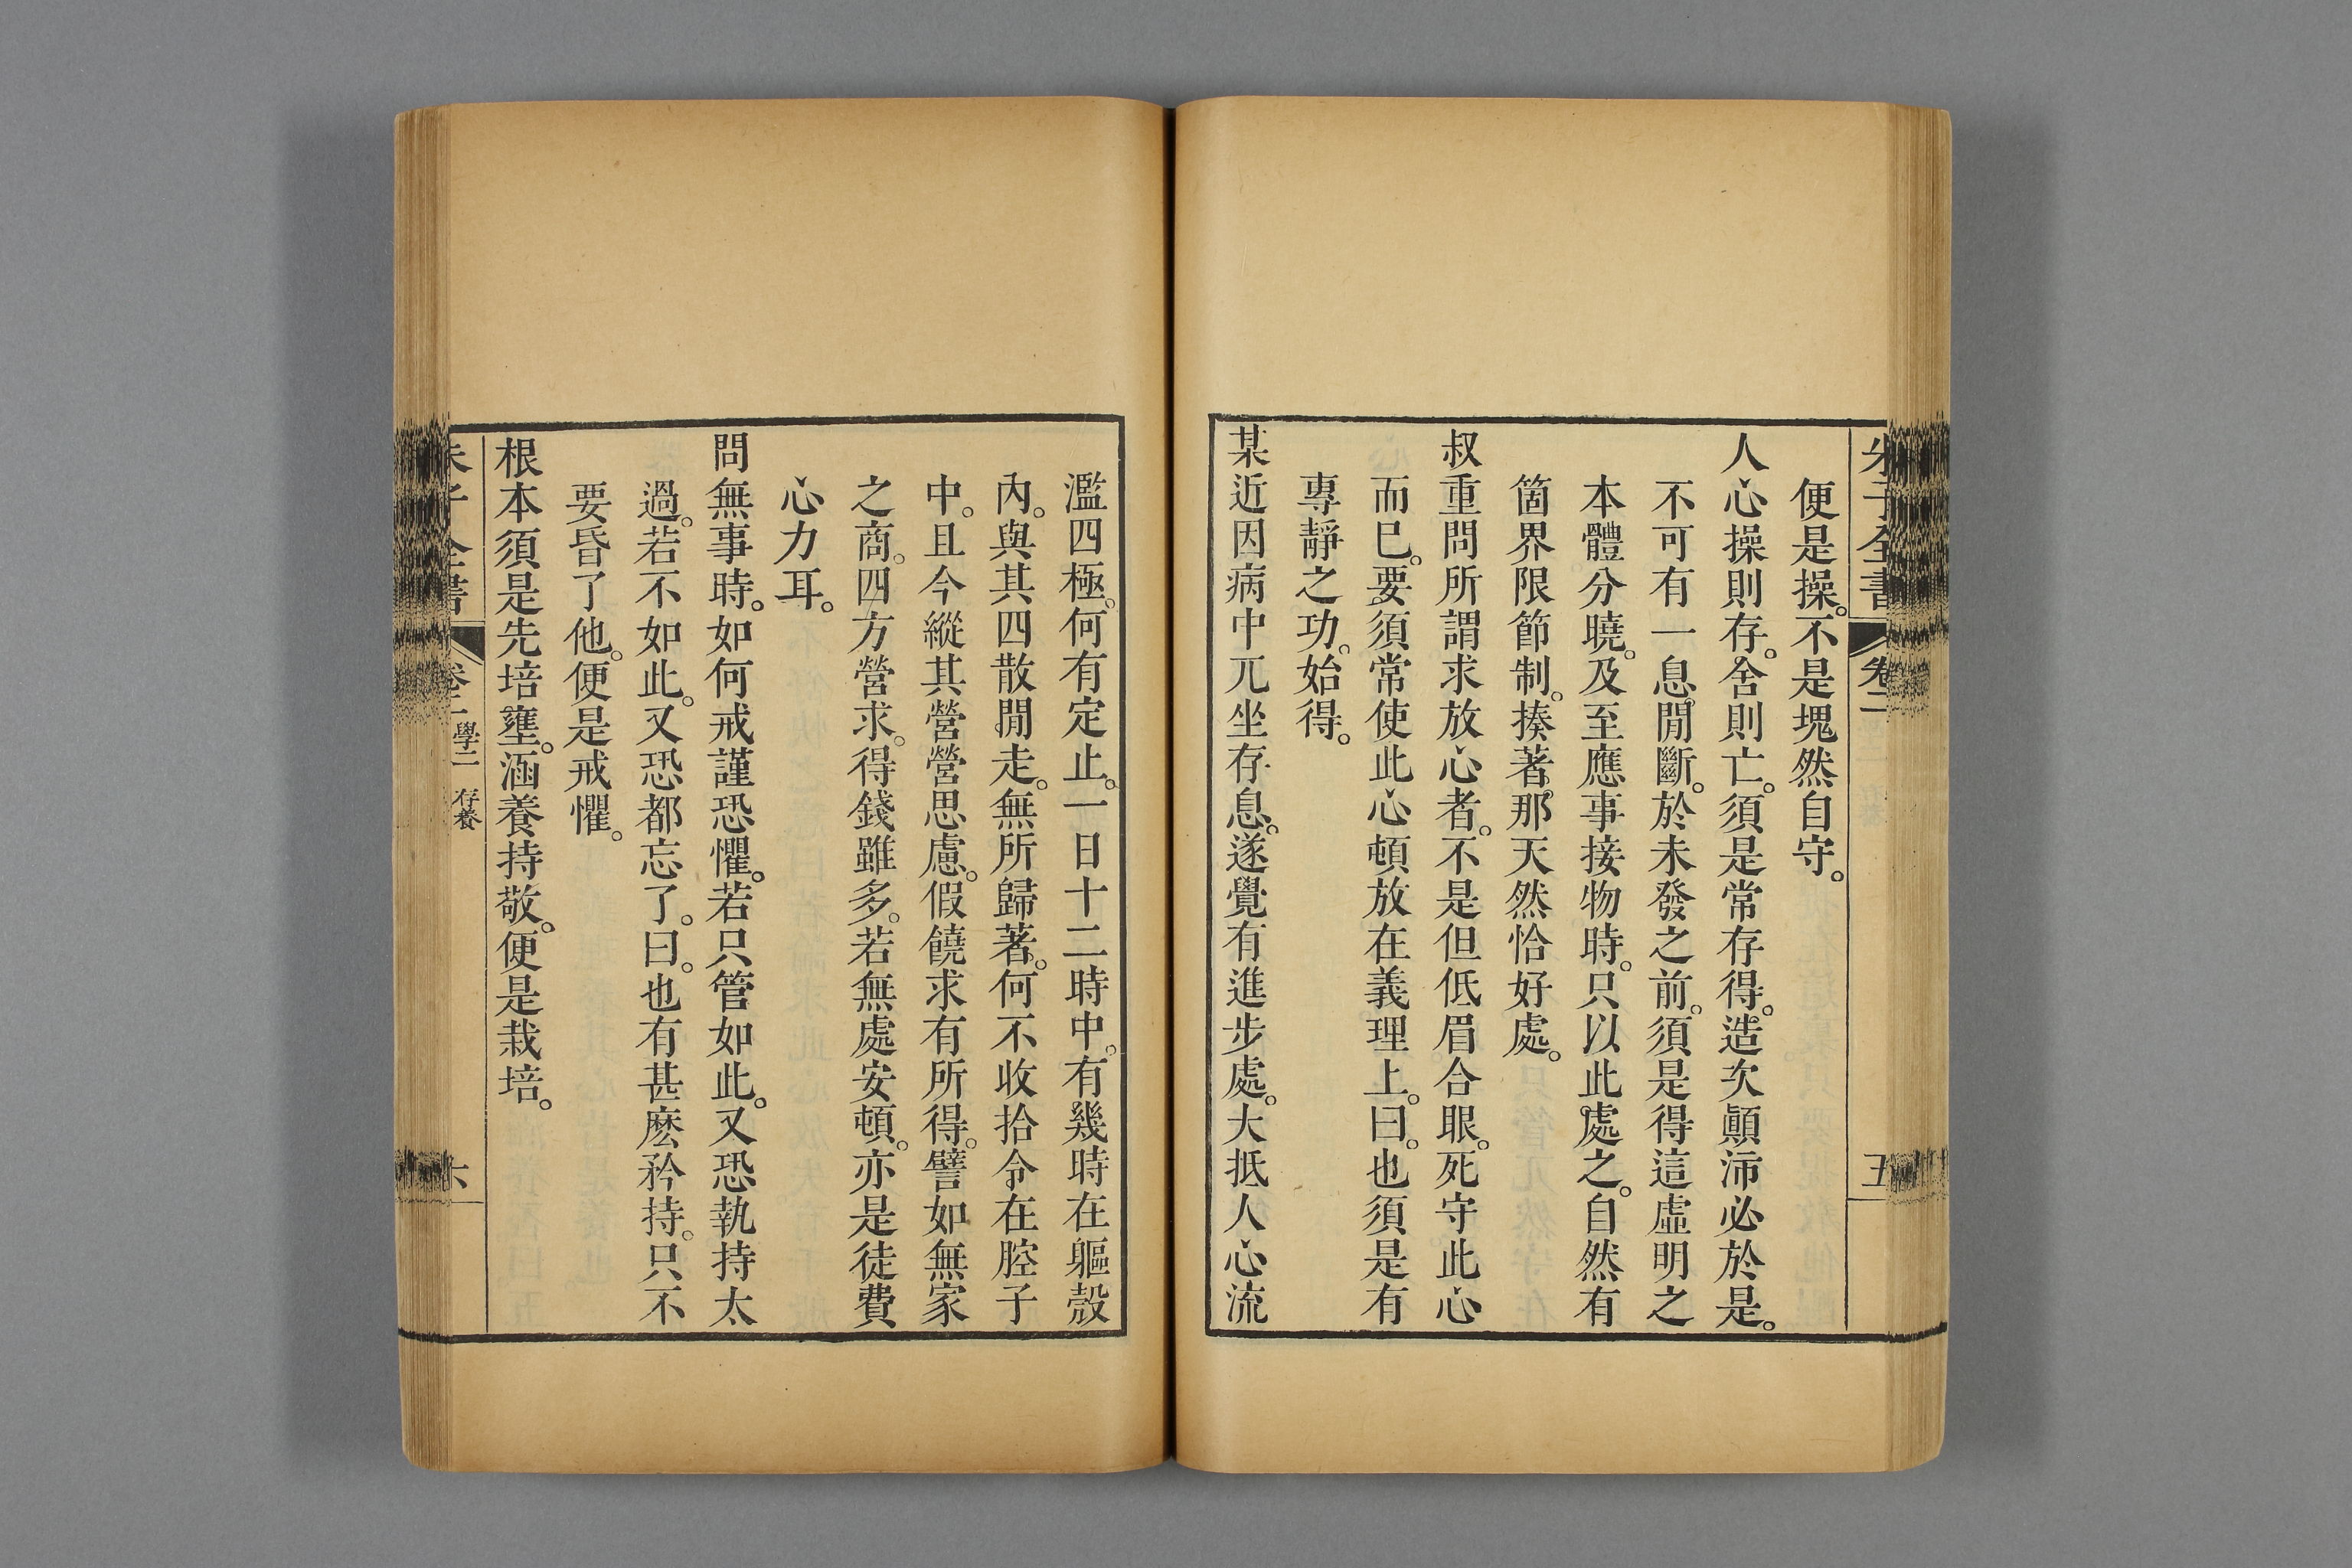 朱子全書 卷二 五
便是操。不是塊然自守。
人心操則存。舍則亡。須是常存得。造次顚沛必於是。
不可有一息閒斷。於未發之前。須是得這虛明之
本體分曉。及至應事接物時。只以此處之。自然有
箇界限節制。揍著那天然恰好處。
叔重問所謂求放心者。不是但低眉合眼。死守此心
而已。要須常使此心頓放在義理上。曰。也須是有
專靜之功。始得。
某近因病中兀坐存息。遂覺有進步處。大抵人心流
濫四極。何有定止。一日十二時中。有幾時在軀殼
內。與其四散閒走。無所歸著。何不收拾令在腔子
中。且今縱其營營思慮。假饒求有所得。譬如無家
之商。四方營求。得錢雖多。若無處安頓。亦是徒費
心力耳。
問無事時。如何戒謹恐懼。若只管如此。又恐執持太
過。若不如此。又恐都忘了。曰。也有甚麽矜持。只不
要昏了他。便是戒懼。
根本須是先培壅。涵養持敬。便是栽培。
朱子全書 卷二 學二 存養 六